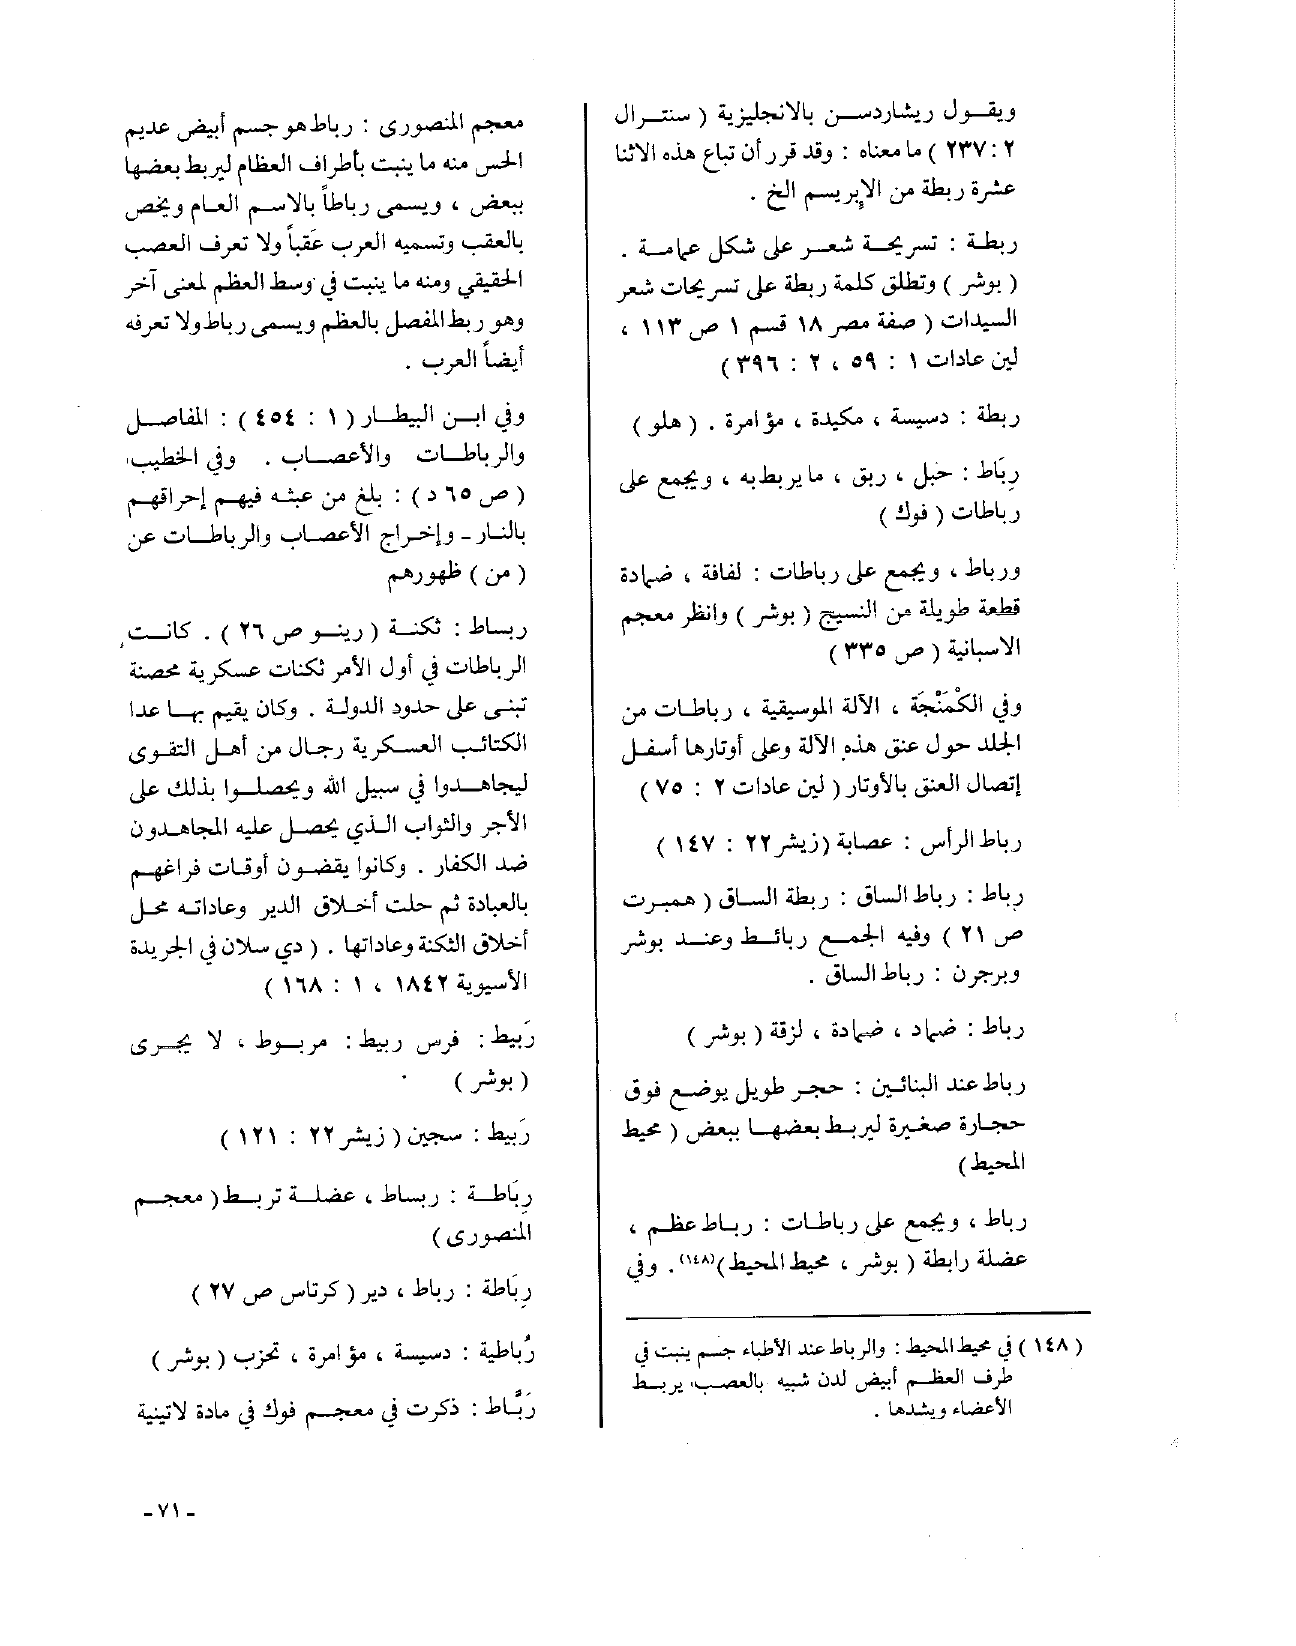 ويقول ريشاردسن بالانجليزية ( سنترال
٢ : ٢٣٧ ) ما معناه : وقد قرر أن تباع هذه الاثنا
عشرة ربطة من الإبريسم الخ .
ربطة : تسريحة شعر على شكل عمامة .
( بوشر ) وتطلق كلمة ربطة على تسريحات شعر
السيدات ( صفة مصر ١٨ قسم ١ ص ١١٣ ،
لين عادات ١ : ٥٩ ، ٢ : ٣٩٦ )
ربطة : دسيسة ، مكيدة ، مؤامرة . ( هلو )
رِبَاط : حبل ، ربق ، ما يربط به ، ويجمع على
رباطات ( فوك )
ورباط ، ويجمع على رباطات : لفافة ، ضمادة
قطعة طويلة من النسيج ( بوشر ) وانظر معجم
الاسبانية ( ص ٢٣٥ )
وفي الكَمَنْجَة ، الآلة الموسيقية ، رباطات من
الجلد حول عنق هذه الآلة وعلى أوتارها أسفل
إتصال العنق بالأوتار ( لين عادات ٢ : ٧٥ )
رباط الرأس : عصابة ( زيشر ٢٢ : ١٤٧ )
رباط : رباط الساق : ربطة الساق ( همبرت
ص ٢١ ) وفيه الجمع ربائط وعند بوشر
وبرجرن : رباط الساق .
رباط : ضماد ، ضمادة ، لزقة ( بوشر )
رباط عند البنائين : حجر طويل يوضع فوق
حجارة صغيرة ليربط بعضها ببعض ( محيط
المحيط )
رباط ، ويجمع على رباطات : رباط عظم ،
عضلة رابطة ( بوشر ، محيط المحيط )(١٤٨) . وفي
( ١٤٨ ) في محيط المحيط : والرباط عند الأطباء جسم ينبت في
طرف العظم أبيض لدن شبيه بالعصب يربط
الأعضاء ويشدها .
معجم المنصوري : رباط هو جسم أبيض عديم
الحس منه ما ينبت بأطراف العظام ليربط بعضها
ببعض ، ويسمى رباطاً بالاسم العام ويخص
بالعقب وتسميه العرب عَقَباً ولا تعرف العصب
الحقيقي ومنه ما ينبت في وسط العظم لمعنى آخر
وهو ربط المفصل بالعظم ويسمى رباط ولا تعرفه
أيضاً العرب .
وفي ابن البيطار ( ١ : ٤٥٤ ) : المفاصل
والرباطات والأعصاب . وفي الخطيب
( ص ٦٥ د ) : بلغ من عبثه فيهم إحراقهم
بالنار - وإخراج الأعصاب والرباطات عن
( من ) ظهورهم
رباط : ثكنة ( رينو ص ٢٦ ) . كانت
الرباطات في أول الأمر ثكنات عسكرية محصنة
تبنى على حدود الدولة . وكان يقيم بها عدا
الكتائب العسكرية رجال من أهل التقوى
ليجاهدوا في سبيل الله ويحصلوا بذلك على
الأجر والثواب الذي يحصل عليه المجاهدون
ضد الكفار . وكانوا يقضون أوقات فراغهم
بالعبادة ثم حلت أخلاق الدير وعاداته محل
أخلاق الثكنة وعاداتها . ( دي سلان في الجريدة
الأسيوية ١٨٤٢ ، ١ : ١٦٨ )
رَبيط : فرس ربيط : مربوط ، لا يجرى
( بوشر )
رَبيط : سجين ( زيشر ٢٢ : ١٢١ )
رِبَاطة : رباط ، عضلة تربط ( معجم
المنصوري )
رِبَاطة : رباط ، دير ( كرتاس ص ٢٧ )
رُباطية : دسيسة ، مؤامرة ، تحزب ( بوشر )
رَبَّاط : ذكرت في معجم فوك في مادة لاتينية
- ٧١ -